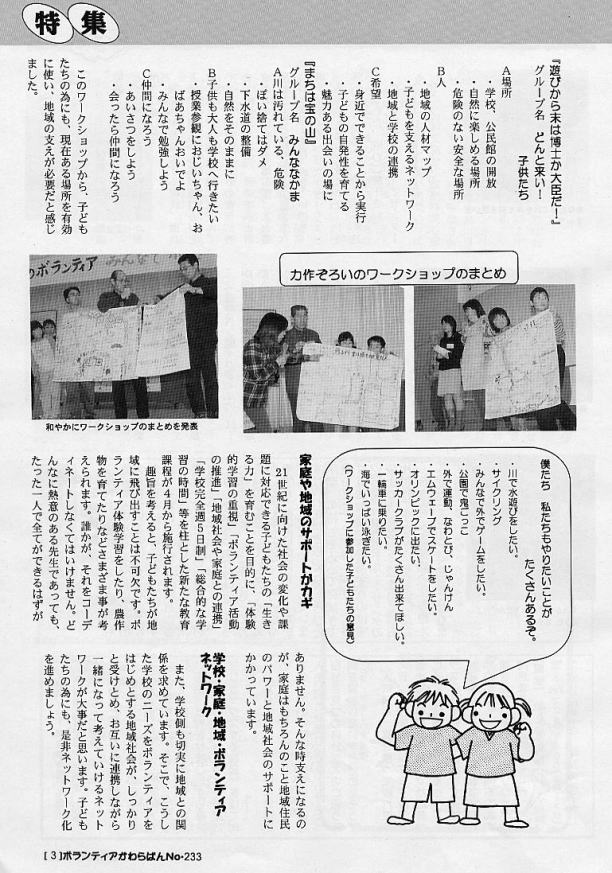 特集
『遊びから末は博士か大臣だ！』
グループ名　どんと来い！
子供たち
A場所
・学校、公民館の開放
・自然に楽しめる場所
・危険のない安全な場所
B人
・地域の人材マップ
・子どもを支えるネットワーク
・地域と学校の連携
C希望
・身近でできることから実行
・子どもの自発性を育てる
・魅力ある出会いの場に
『まちは宝の山』
グループ名　みんななかま
A川は汚れている、危険
・ぽい捨てはダメ
・下水道の整備
・自然をそのままに
B子供も大人も学校へ行きたい
・授業参観におじいちゃん、お
ばあちゃんおいでよ
・みんなで勉強しよう
C仲間になろう
・あいさつをしよう
・会ったら仲間になろう
このワークショップから、子ども
たちの為にも、現在ある場所を有効
に使い、地域の支えが必要だと感じ
ました。
力作ぞろいのワークショップのまとめ
のボランティア　みんなで
和やかにワークショップのまとめを発表
僕たち　私たちもやりたいことが
たくさんあるぞ。
・川で水遊びをしたい。
・サイクリング
・みんなで外でゲームをしたい。
・公園で鬼ごっこ
・外で運動、なわとび、じゃんけん
・エムウェーブでスケートをしたい。
・オリンピックに出たい。
・サッカークラブがたくさん出来てほしい。
・一輪車に乗りたい。
・海でいっぱい泳ぎたい。
（ワークショップに参加した子どもたちの意見）
家庭や地域のサポートがカギ
21世紀に向けた社会の変化や課
題に対応できる子どもたちの「生き
る力」を育むことを目的に、「体験
的学習の重視」「ボランティア活動
の推進」「地域社会や家庭との連携」
「学校完全週5日制」「総合的な学
習の時間」等を柱とした新たな教育
課程が4月から施行されます。
趣旨を考えると、子どもたちが地
域に飛び出すことは不可欠です。ボ
ランティア体験学習をしたり、農作
物を育てたりなどさまざま事が考
えられます。誰かが、それをコーデ
ィネートしなくてはいけません。ど
んなに熱意のある先生であっても、
たった一人で全てができるはずが
ありません。そんな時支えになるの
が、家庭はもちろんのこと地域住民
のパワーと地域社会のサポートに
かかっています。
学校・家庭・地域・ボランティア
ネットワーク
また、学校側も切実に地域との関
係を求めています。そこで、こうし
た学校のニーズをボランティアを
はじめとする地域社会が、しっかり
と受けとめ、お互いに連携しながら
一緒になって考えていけるネット
ワークが大事だと思います。子ども
たちの為にも、是非ネットワーク化
を進めましょう。
[3]ボランティアかわらばんNo・233